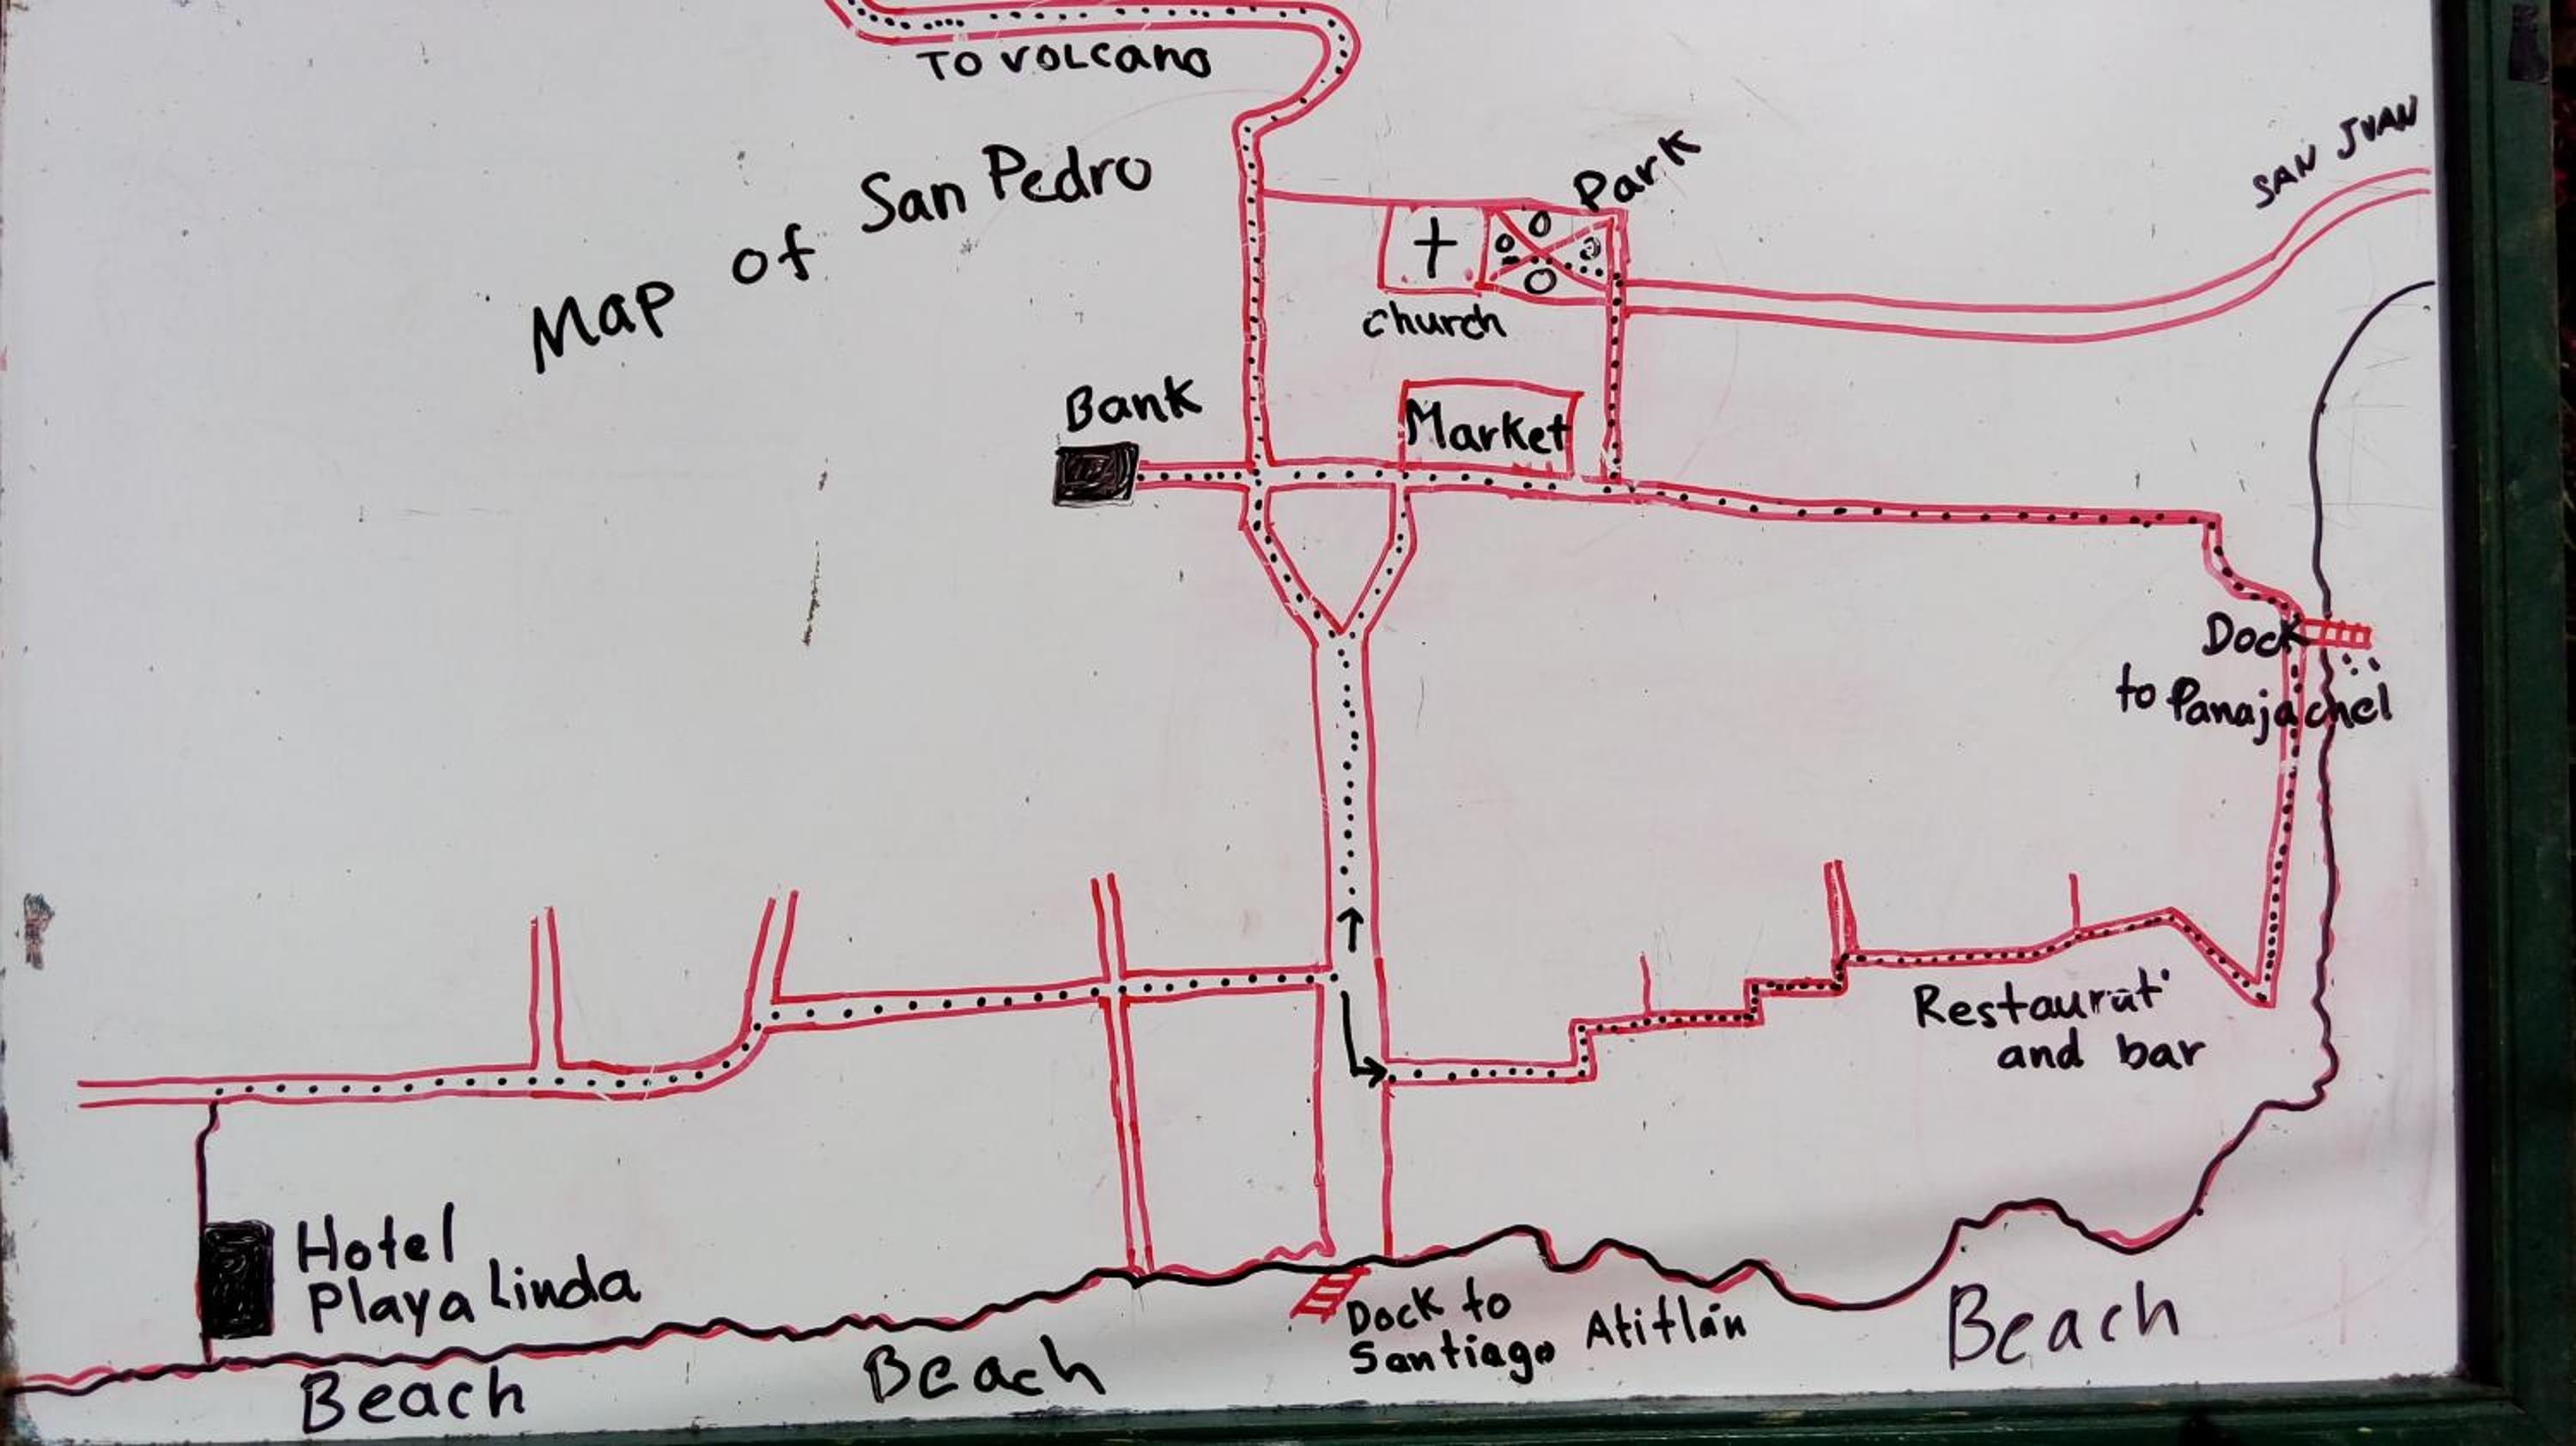 TO VOLCANO
Map of San Pedro
Park
SAN JUAN
church
Bank
Market
Dock
to Panajachel
Restaurat
and bar
Hotel
Playa Linda
Dock to
Santiago Atitlán
Beach
Beach
Beach